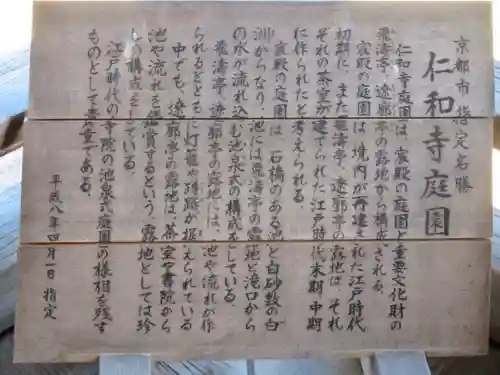 京都市指定名勝
仁和寺庭園
仁和寺庭園は、宸殿の庭園と重要文化財の
飛濤亭、遼廓亭の露地から構成される。
宸殿の庭園は、境内が再建された江戸時代
初期に、また飛濤亭、遼廓亭の露地は、それ
ぞれの茶室が建てられた江戸時代末期、中期
に作られたと考えられる。
宸殿の庭園は、石橋のある池と白砂敷の白
洲からなり、池には飛濤亭の露地と滝口から
の水が流れ込む池泉式の構成をしている。
飛濤亭、遼廓亭の露地は、池や流れが作
られるとともに灯籠や蹲踞が据えられている
中でも、遼廓亭の露地は、茶室や書院から
池や流れを鑑賞するという、露地としては珍
しい構成をしている。
江戸時代の寺院の池泉式庭園の様相を残す
ものとして貴重である。
平成八年四月一日 指定